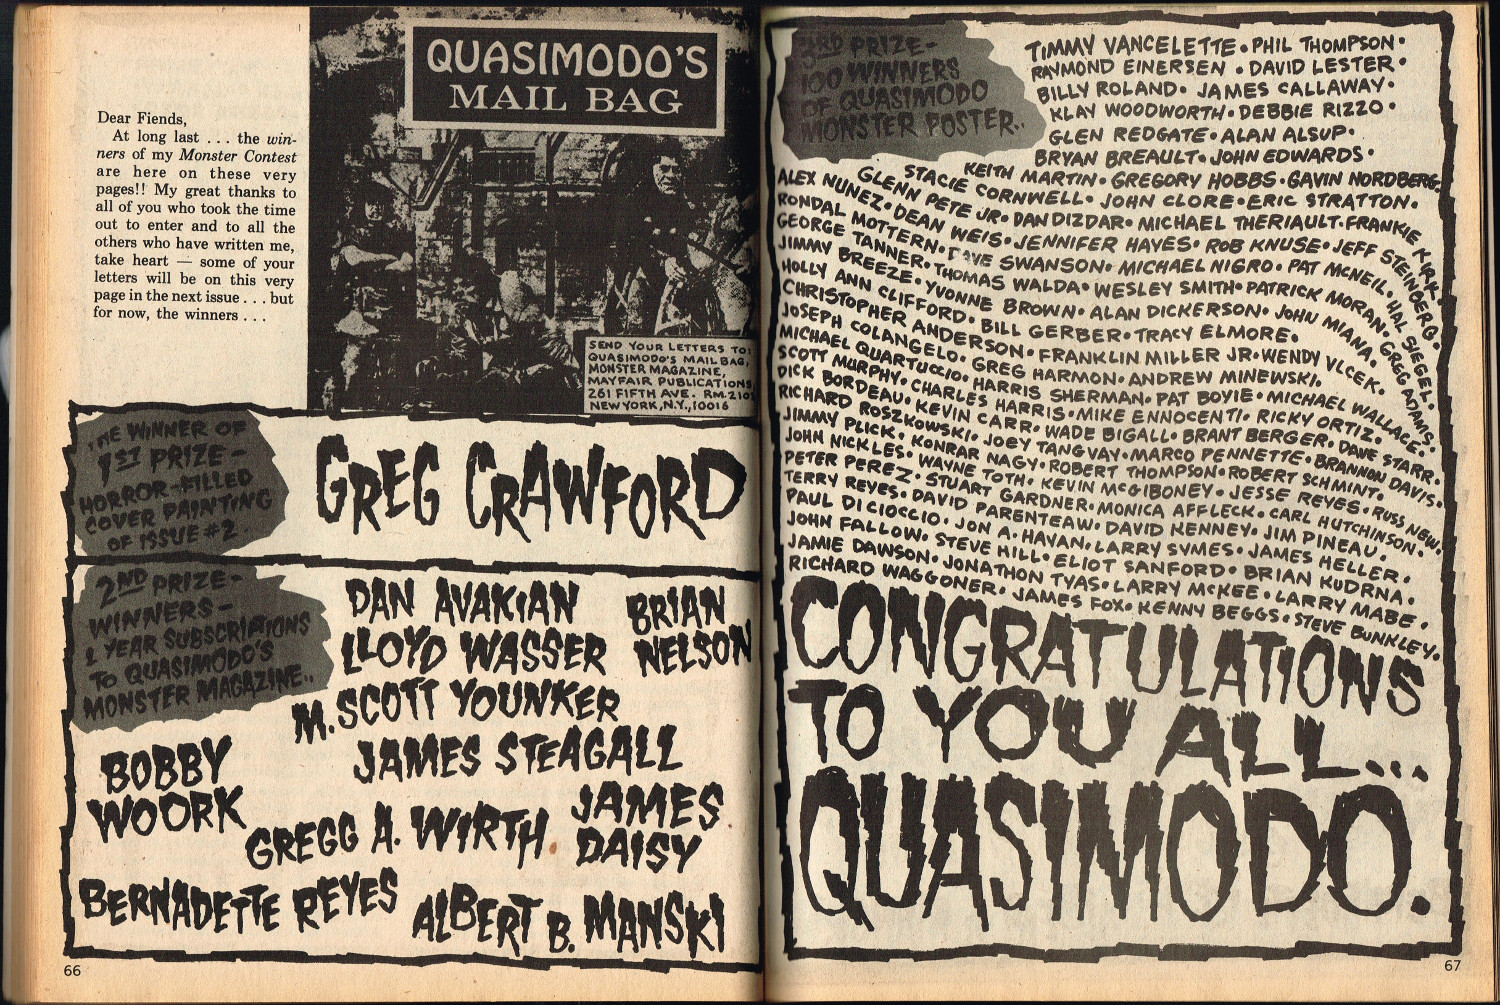 Dear Fiends,
At long last . . . the win-
ners of my Monster Contest
are here on these very
pages!! My great thanks to
all of you who took the time
out to enter and to all the
others who have written me,
take heart — some of your
letters will be on this very
page in the next issue . . . but
for now, the winners . . .
QUASIMODO'S
MAIL BAG
SEND YOUR LETTERS TO:
QUASIMODO'S MAIL BAG,
MONSTER MAGAZINE,
MAYFAIR PUBLICATIONS
261 FIFTH AVE. RM. 2103
NEW YORK, N.Y., 10016
THE WINNER OF
1ST PRIZE-
HORROR-FILLED
COVER PAINTING
OF ISSUE #2
GREG CRAWFORD
2ND PRIZE-
WINNERS-
1 YEAR SUBSCRIPTIONS
TO QUASIMODO'S
MONSTER MAGAZINE..
DAN AVAKIAN
BRIAN
NELSON
LLOYD WASSER
M. SCOTT YOUNKER
JAMES STEAGALL
BOBBY
WOORK
GREGG A. WIRTH
JAMES
DAISY
BERNADETTE REYES
ALBERT B. MANSKI
66
3RD PRIZE-
100 WINNERS
OF QUASIMODO
MONSTER POSTER..
TIMMY VANCELETTE • PHIL THOMPSON •
RAYMOND EINERSEN • DAVID LESTER •
BILLY ROLAND • JAMES CALLAWAY •
KLAY WOODWORTH • DEBBIE RIZZO •
GLEN REDGATE • ALAN ALSUP •
BRYAN BREAULT • JOHN EDWARDS •
KEITH MARTIN • GREGORY HOBBS • GAVIN NORDBERG •
STACIE CORNWELL • JOHN CLORE • ERIC STRATTON •
GLENN PETE JR • DAN DIZDAR • MICHAEL THERIAULT • FRANKIE KIRK •
ALEX NUNEZ • DEAN WEIS • JENNIFER HAYES • ROB KNUSE • JEFF STEINBERG •
RONDAL MOTTERN • DAVE SWANSON • MICHAEL NIGRO • PAT MCNEIL • HAL SIEGEL •
GEORGE TANNER • THOMAS WALDA • WESLEY SMITH • PATRICK MORAN • GREG ADAMS •
JIMMY BREEZE • YVONNE BROWN • ALAN DICKERSON • JOHN MIANA •
HOLLY ANN CLIFFORD • BILL GERBER • TRACY ELMORE •
CHRISTOPHER ANDERSON • FRANKLIN MILLER JR • WENDY VLCEK •
JOSEPH COLANGELO • GREG HARMON • ANDREW MINEWSKI •
MICHAEL QUARTUCCIO • HARRIS SHERMAN • PAT BOYIE • MICHAEL WALLACE •
SCOTT MURPHY • CHARLES HARRIS • MIKE ENNOCENTI • RICKY ORTIZ •
DICK BORDEAU • KEVIN CARR • WADE BIGALL • BRANT BERGER • DAVE STARR •
RICHARD ROSZKOWSKI • JOEY TANGVAY • MARCO PENNETTE • BRANNON DAVIS •
JIMMY PLICK • KONRAR NAGY • ROBERT THOMPSON • ROBERT SCHMINT •
JOHN NICKLES • WAYNE TOTH • KEVIN MCGIBONEY • JESSE REYES • RUSS NEW •
PETER PEREZ • STUART GARDNER • MONICA AFFLECK • CARL HUTCHINSON •
TERRY REYES • DAVID PARENTEAW • DAVID KENNEY • JIM PINEAU •
PAUL DI CIOCCIO • JON A. HAVAN • LARRY SYMES • JAMES HELLER •
JOHN FALLOW • STEVE HILL • ELIOT SANFORD • BRIAN KUDRNA •
JAMIE DAWSON • JONATHON TYAS • LARRY MCKEE • LARRY MABE •
RICHARD WAGGONER • JAMES FOX • KENNY BEGGS • STEVE BUNKLEY •
CONGRATULATIONS
TO YOU ALL...
QUASIMODO.
67